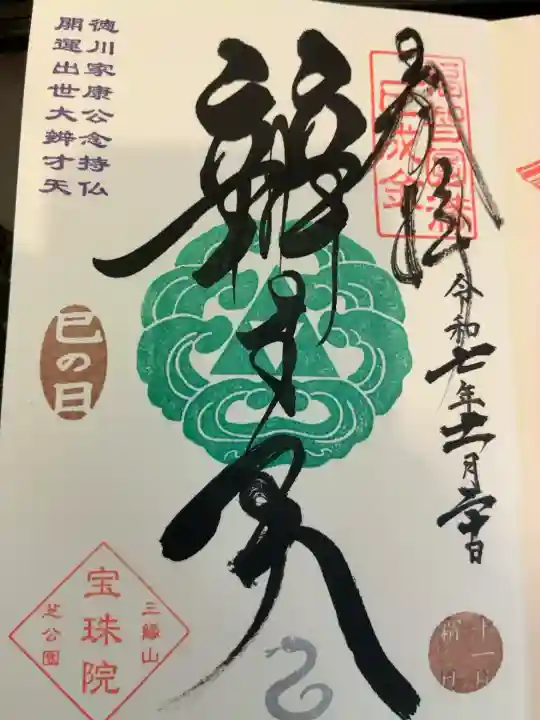 奉拝
福智圓満
巳成金
令和七年十一月二十日
辨才天
徳川家康公念持仏
開運出世大辨才天
巳の日
三縁山
宝珠院
芝公園
十一月